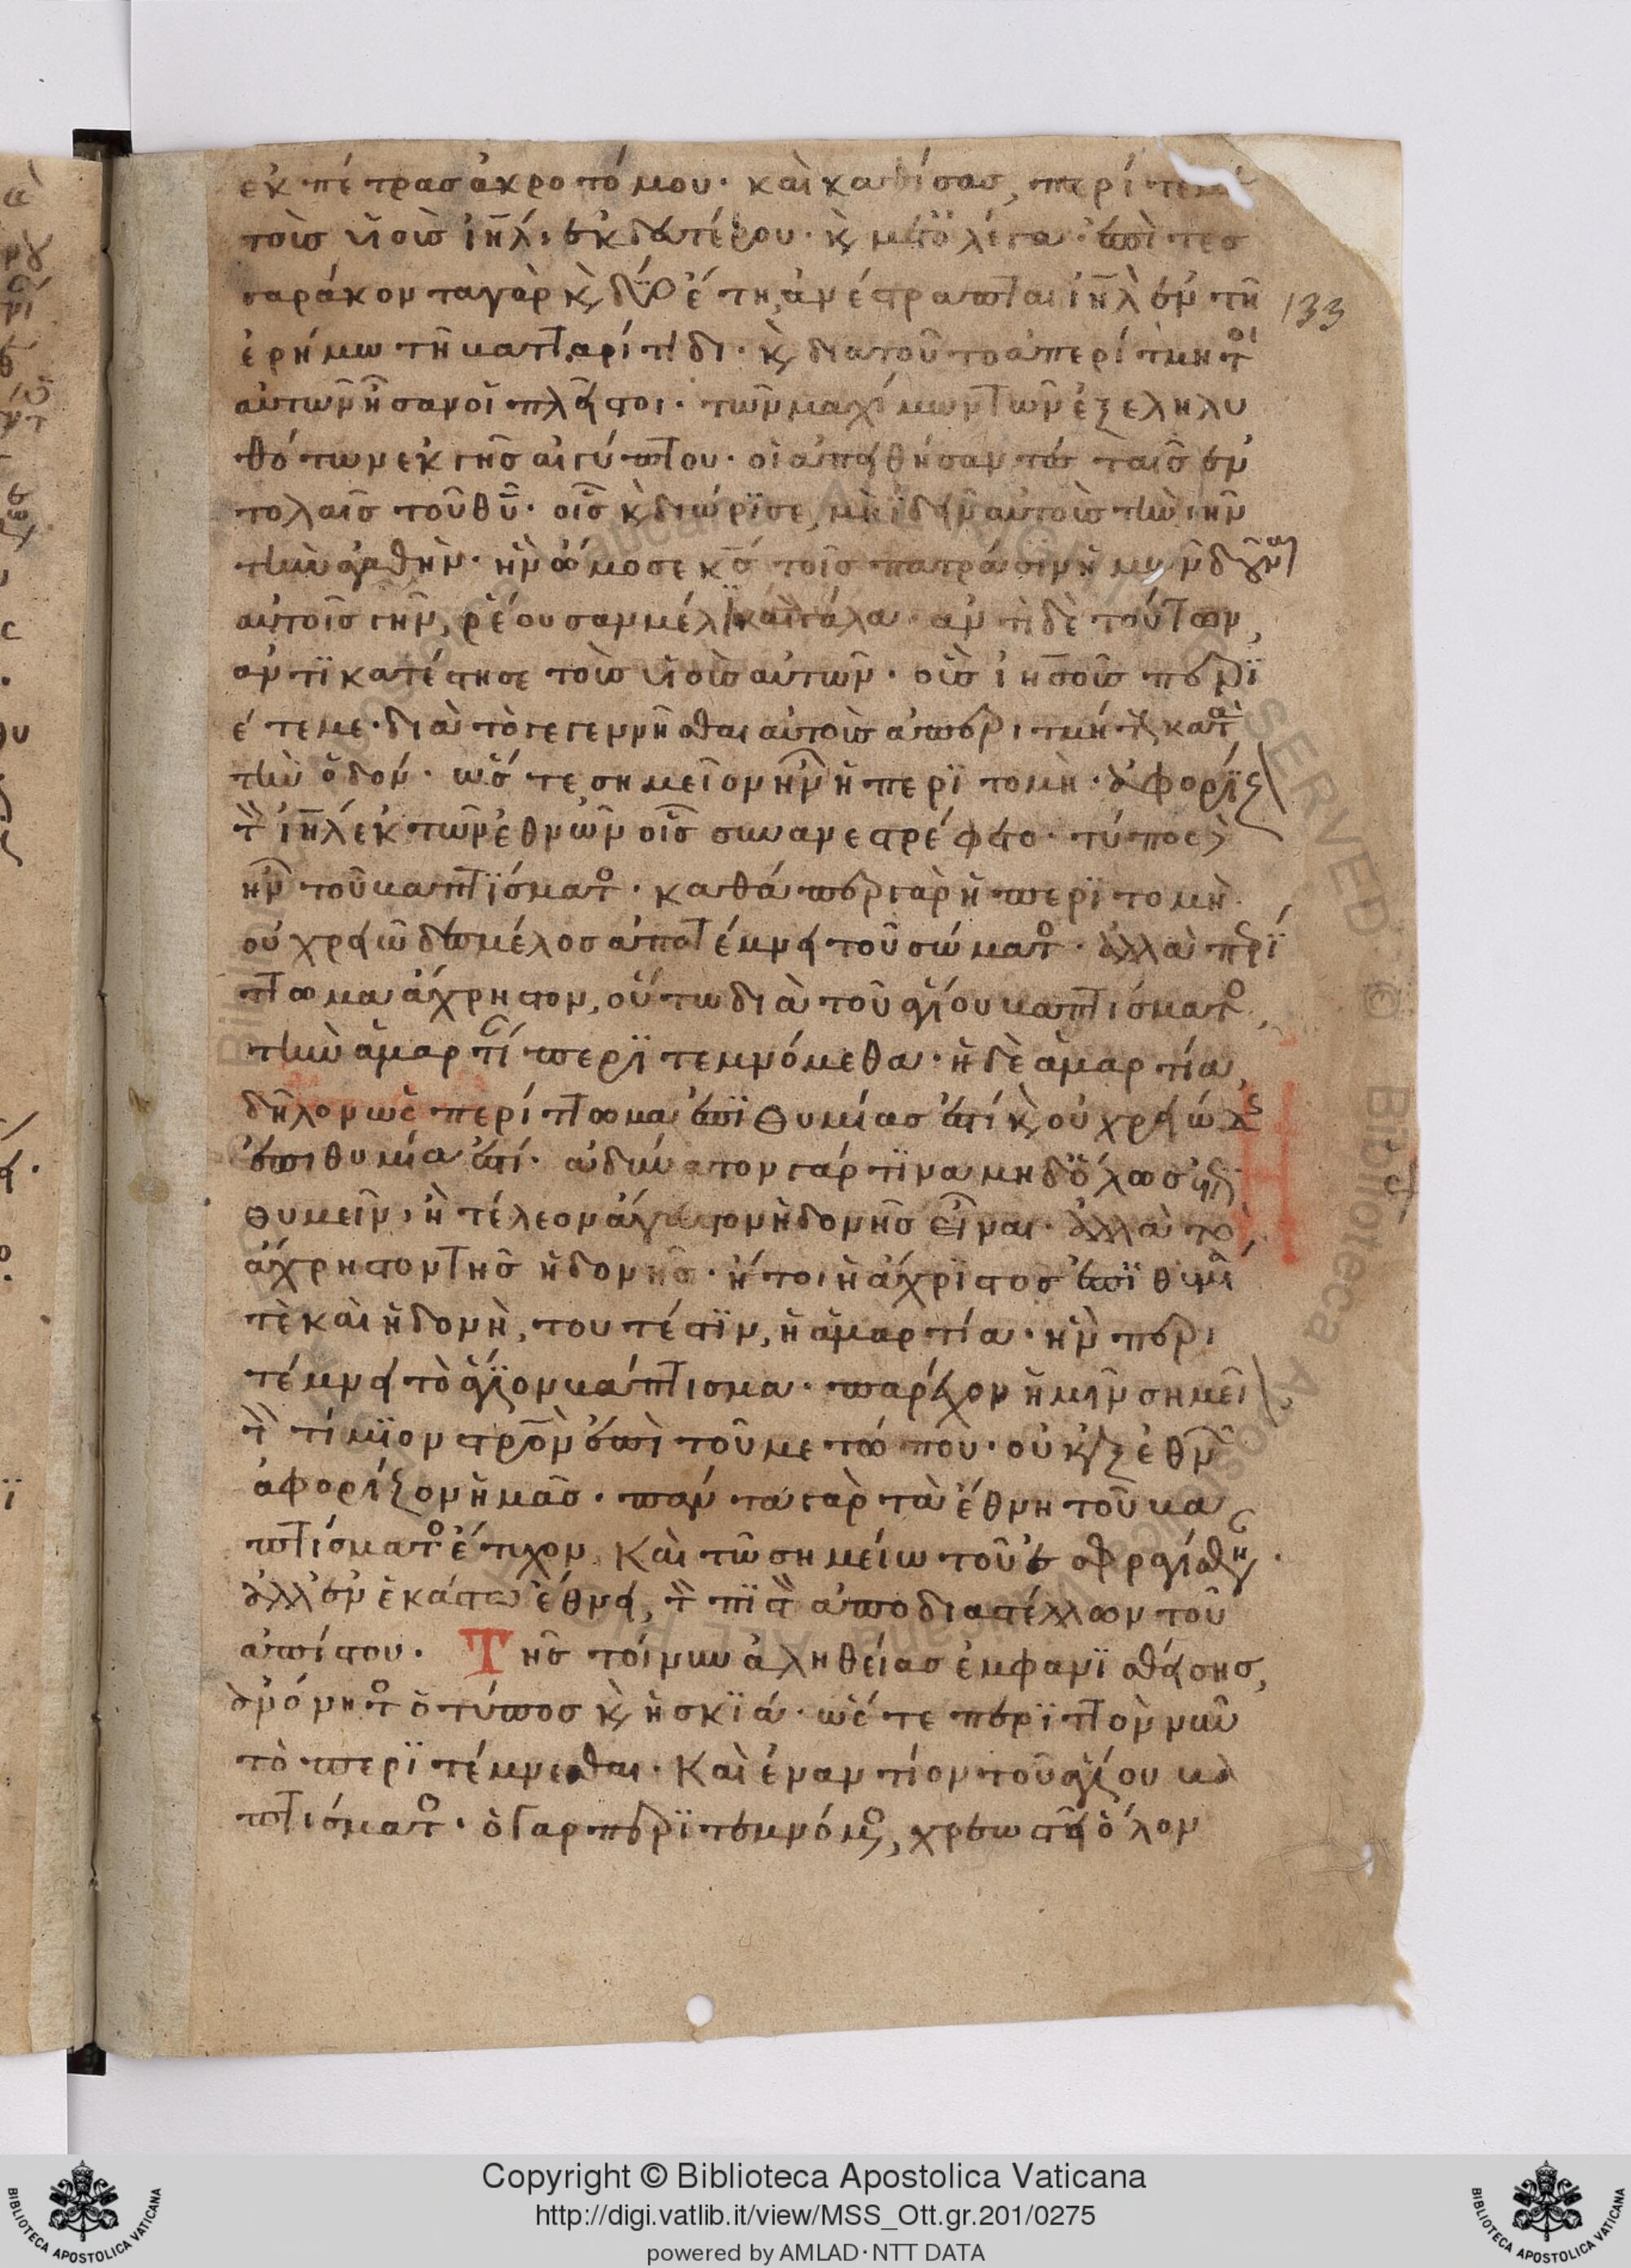 ἐκ πέτρας ἀκροτόμου· καὶ καθίσας, περίτεμε
τοὺς υἱοὺς ἰηλ· ἐκ δευτέρου· κ μετ ὀλίγα· ἐπὶ τεσ
σαράκοντα γὰρ κ δύο ἔτη, ἀνέστραπται ἰηλ ἐν τῆ
ἐρήμω τῆ μαυδαρίτιδι· κ διατοῦτο ἀπερίτμητοι
αὐτῶν ἦσαν οἱ πλεῖστοι· τῶν μαχίμων τῶν ἐξεληλυ
θότων ἐκ γῆς αἰγύπτου· οἱ ἀπειθήσαντες ταῖς ἐν
τολαῖς τοῦ θυ· οἷς κ διώρισε, μὴ ἰδεῖν αὐτοὺς τὴν γῆν
τὴν ἀγαθὴν· ἣν ὤμοσε κς τοῖς πατράσιν ἡμῶν δοῦναι
αὐτοῖς γῆν, ῥέουσαν μέλι καὶ γάλα· ἀντὶ δὲ τούτων,
ἀντικατέστησε τοὺς υἱοὺς αὐτῶν· οὓς ἰησοῦς περι
έτεμε· διὰ τὸ γεγεννῆσθαι αὐτοὺς ἀπεριτμήτους κατὰ
τὴν ὁδόν· ὥστε σημεῖον ἦν ἡ περιτομὴ· ἀφορίζον
τὸν ἰηλ ἐκ τῶν ἐθνῶν οἷς συνανεστρέφετο· τύπος δὲ
ἦν τοῦ βαπτίσματος· καθάπερ γὰρ ἡ περιτομὴ
οὐ χρειῶδες μέλος ἀποτέμνει τοῦ σώματος· ἀλλὰ περί
τωμα ἄχρηστον, οὕτω διὰ τοῦ ἁγίου βαπτίσματος
τὴν ἁμαρτίαν περιτεμνόμεθα· ἡ δὲ ἁμαρτία,
δῆλον ὡς περίπτωμα ἐπιθυμίας ἐστί κ οὐ χρειώδης
ἐπιθυμία ἐστί· ἀδύνατον γάρ τινα μηδόλως ἐπι
θυμεῖν, ἢ τέλεον ἄγευστον ἡδονῆς εἶναι· ἀλλὰ τὸ
ἄχρηστον τῆς ἡδονῆς· ἤτοι ἡ ἄχριστος ἐπιθυμία
τὲ καὶ ἡδονὴ, τουτέστιν, ἡ ἁμαρτία· ἣν περι
τέμνει τὸ ἅγιον βάπτισμα· παρέχον ἡμῖν σημεῖον
τὸν τίμιον στρον ἐπὶ τοῦ μετώπου· οὐκ ἐξ ἐθνῶν
ἀφορίζον ἡμᾶς· πάντα γὰρ τὰ ἔθνη τοῦ βα
πτίσματος ἔτυχον, καὶ τῶ σημείω τοῦ στ ἐσφραγίσθη·
ἀλλ' ἐν ἑκάστω ἔθνει, τὸν πιστὸν ἀποδιαστέλλων τοῦ
ἀπίστου· Τῆς τοίνυν ἀληθείας ἐμφανισθείσης,
ἀνόνητος ὁ τύπος κ ἡ σκιά· ὥστε περιττὸν νῦν
τὸ περιτέμνεσθαι· καὶ ἐναντίον τοῦ ἁγίου βα
πτίσματος· ὁ γὰρ περιτεμνόμενος, χρεωστεῖ ὅλον
133
Copyright © Biblioteca Apostolica Vaticana
http://digi.vatlib.it/view/MSS_Ott.gr.201/0275
powered by AMLAD·NTT DATA
BIBLIOTECA APOSTOLICA VATICANA
BIBLIOTECA APOSTOLICA VATICANA